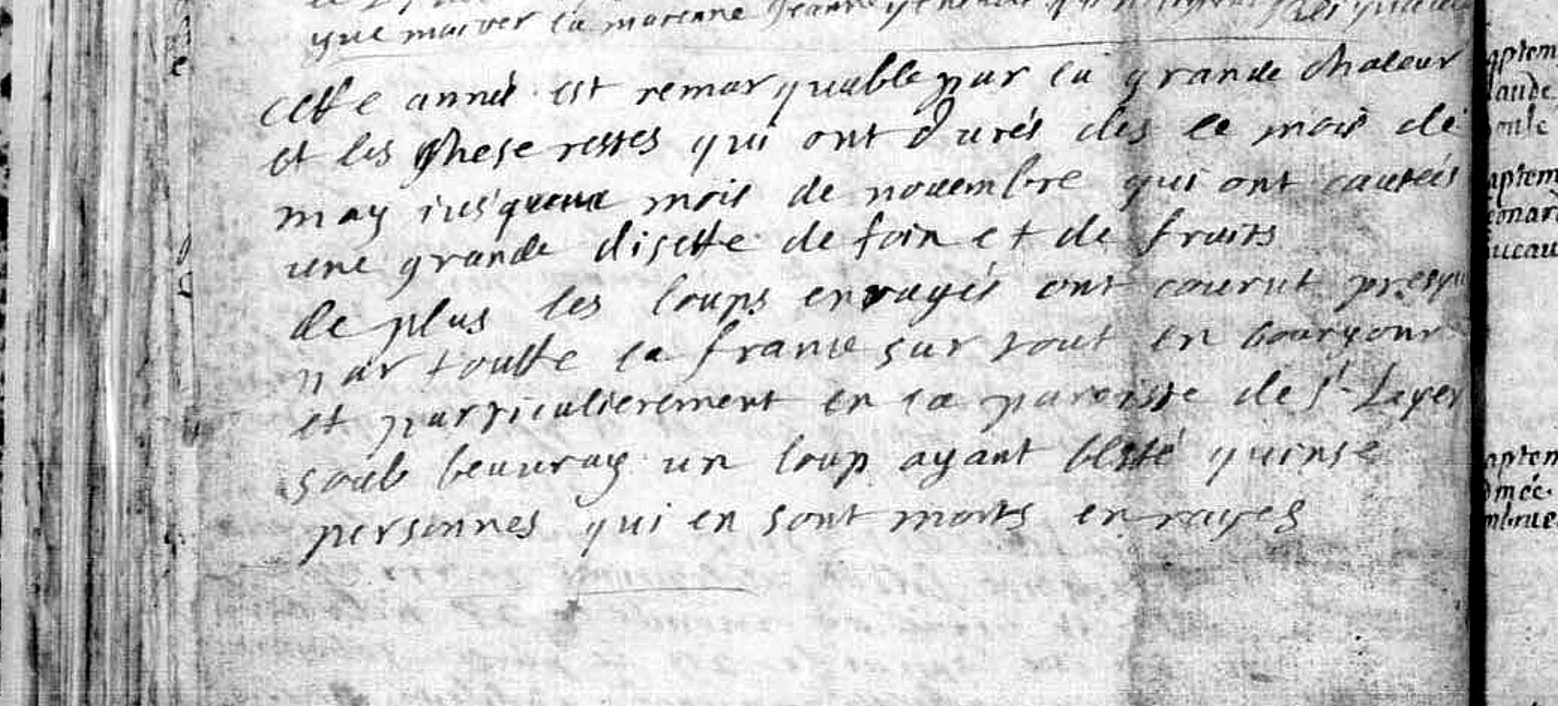 que marver la marenne Jeanne
cette anneé est remarquable par la grande Chaleur
et les secheresses qui ont durés des le mois de
may jusqu'aux mois de nouembre qui ont causés
une grande disette de foin et de fruits
de plus les loups enragés ont courut presqu
par toutte la france sur tout en bourgonr
et particulierement en la paroisse de St Leger
soub beuuray un loup ayant blessé quinse
personnes qui en sont morts enrages
aptem
aude
aptem
eonard
aptem